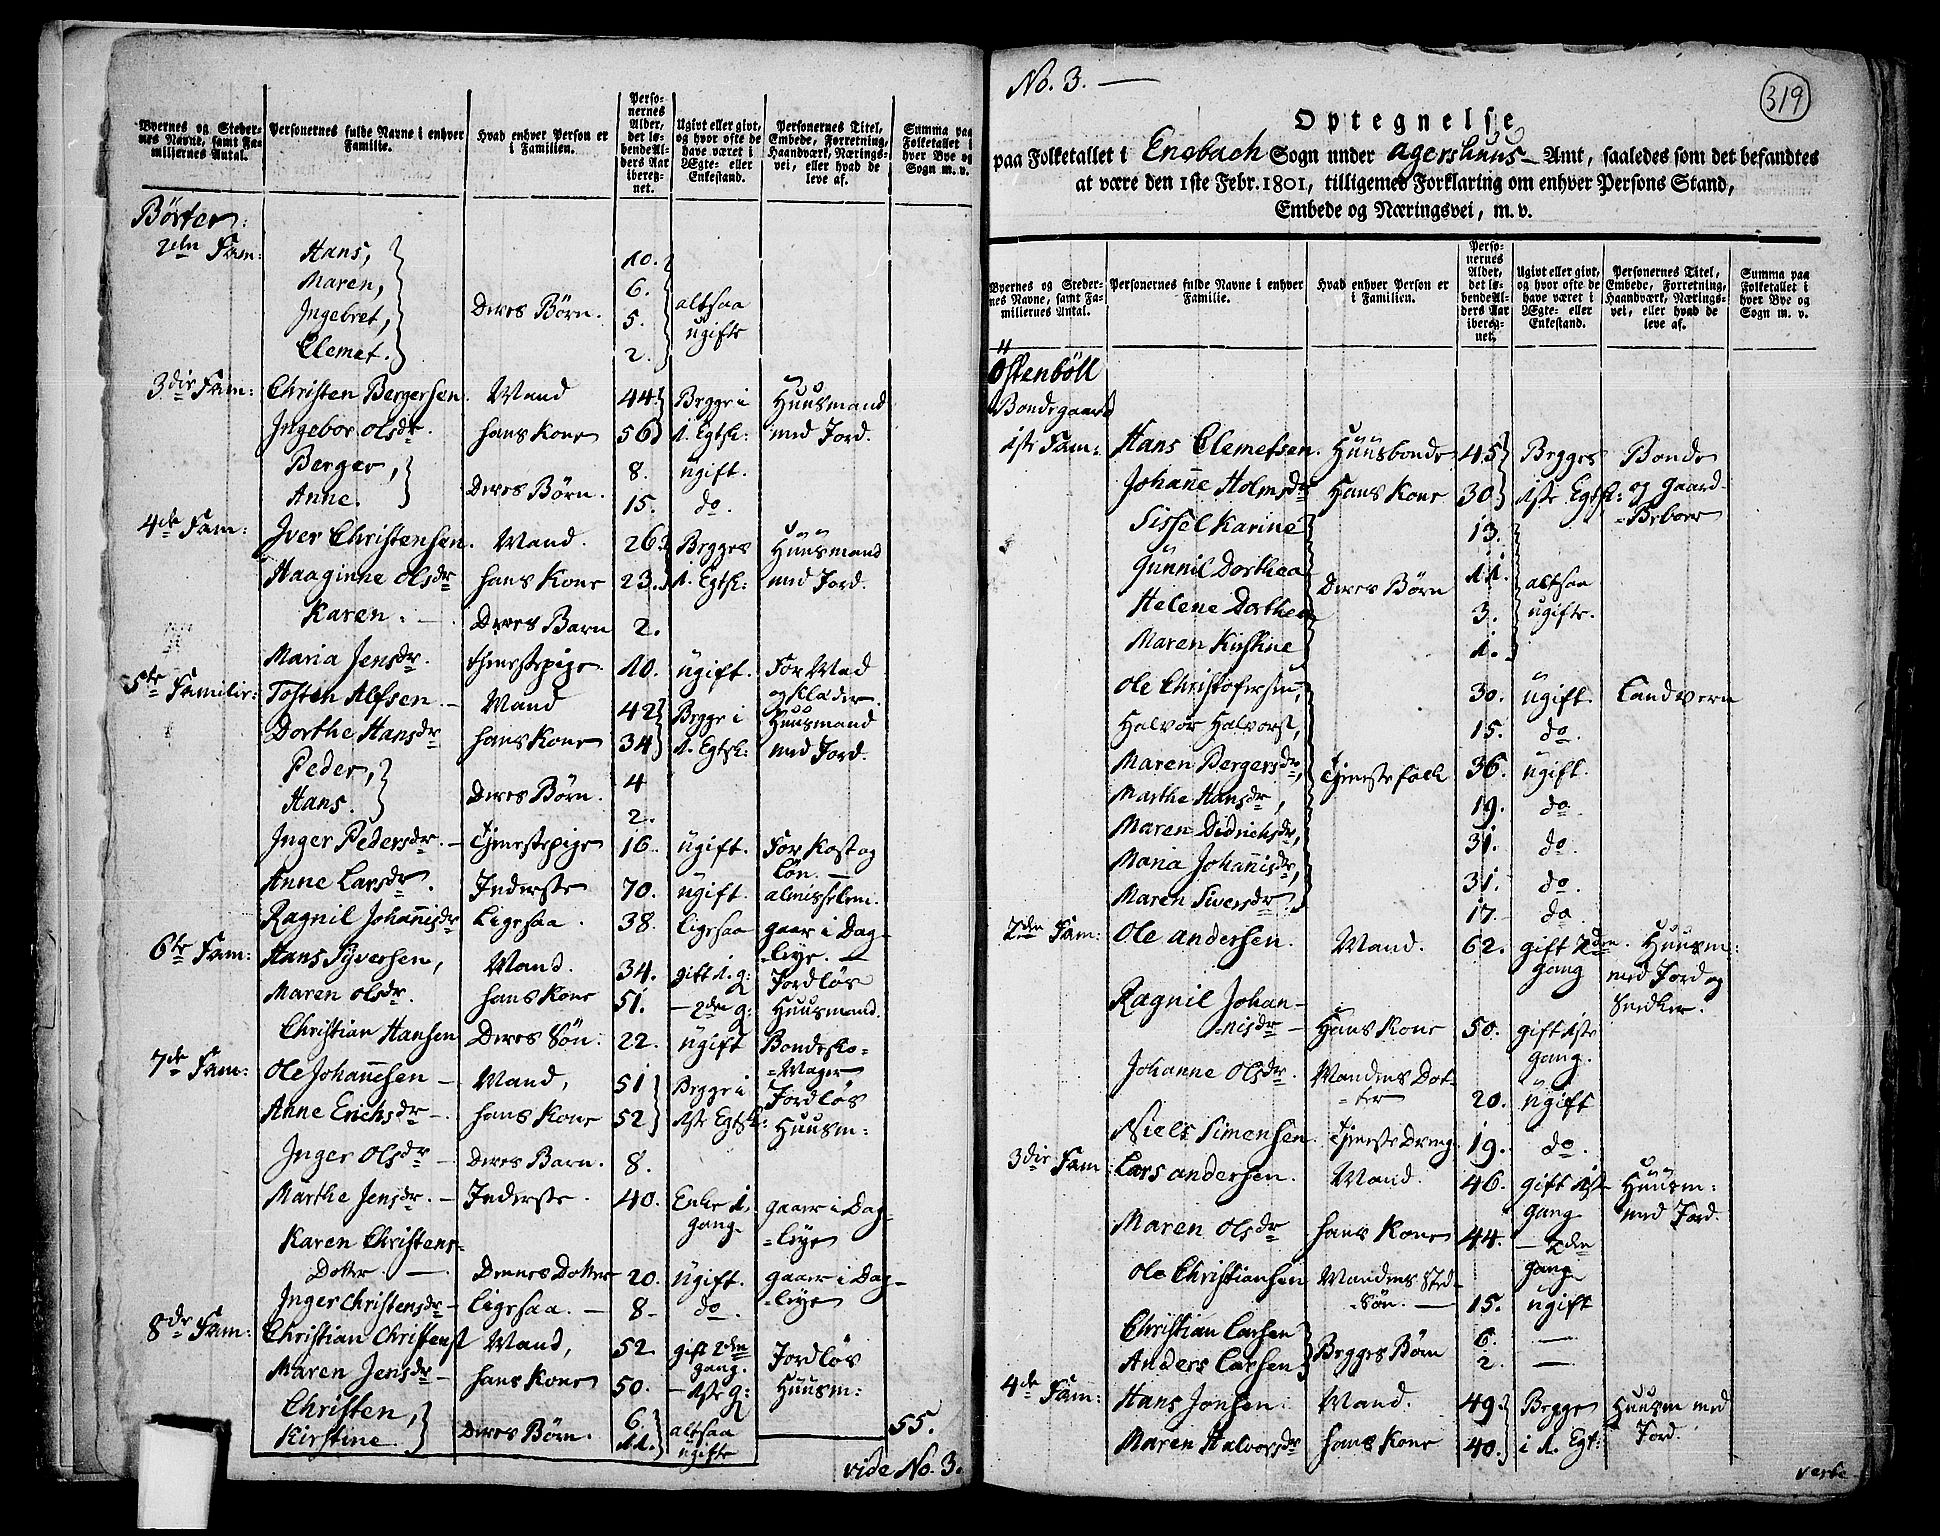 Byernes og Steder-
nes Navne, samt Fa-
miliernes Antal.
Personernes fulde Navne i enhver
Familie.
Hvad enhver Person er
i Familien.
Perso-
nernes
Alder,
det lø-
bende Al-
ders Aar
ibereg-
net.
Ugivt eller givt,
og hvor ofte de
have været i
Ægte- eller
Enkestand.
Personernes Titel,
Embede, Forretning,
Haandværk, Nærings-
vei, eller hvad de
leve af.
Summa paa
Folketallet i
hver Bye og
Sogn m. v.
Børter:
2den Fam: Hans, 10.
Maren, 6.
Deres Børn. altsaa ugifte
Ingebret, 5.
Clemet. 2.
3die Fam: Christen Bergersen Mand 44 Begge i Huusmand
Ingebor Olsdr. hans Kone 56 1. Egtsk: med Jord.
Berger, 8. ugift.
Deres Børn.
Anne. 15. do.
4de Fam: Iver Christensen. Mand. 26 Begges Huusmand
Haaginne Olsdr hans Kone 23. 1. Egtsk: med Jord.
Karen. Deres Barn 2.
Maria Jensdr. tjenestepige. 10. ugift. For Mad
og Klæder.
5te Familie: Tosten Alfsen Mand 42 Begge i Huusmand
Dorthe Hansdr hans Kone 34 1. Egtsk: med Jord.
Peder, 4
Deres Børn.
Hans. 2.
Inger Pedersdr. Tjenestepige 16. ugift. For Kost og
Løn.
Anne Larsdr. Inderste 70. ugift. almisselem.
Ragnil Johannisdr Ligesaa. 38. Ligesaa gaar i Dag-
leye.
6te Fam: Hans Syversen, Mand. 34. gift 1. g: Jordløs
Maren Olsdr. hans Kone 51. 2den g: Huusmand.
Christian Hansen Deres Søn: 22. ugift Bondesko-
Mager
7de Fam: Ole Johannesen Mand, 51 Begge i Jordløs
Anne Erichsdr hans Kone 52 1ste Egtsk: Huusm:
Inger Olsdr Deres Barn. 8.
Marthe Jensdr. Inderste. 40. Enke 1. gaaer i Dag-
gang. leye
Karen Christens-
Dotter. Dennes Dotter 20. ugift. gaaer i Dag-
leye
Inger Christensdr Ligesaa. 8. do.
8de Fam: Christian Christenst Mand, 52 gift 2den Jordløs
gang.
Maren Jensdr hans Kone 50. 1ste g: Huusm:
Christen, 6.
Deres Børn. altsaa ugifte 55.
Kirstine. 11.
vide No. 3.
No. 3.
319
Optegnelse
paa Folketallet i Enebach Sogn under Agershuus Amt, saaledes som det befandtes
at være den 1ste Febr. 1801, tilligemed Forklaring om enhver Persons Stand,
Embede og Næringsvei, m. v.
Byernes og Steder-
nes Navne, samt Fa-
miliernes Antal.
Personernes fulde Navne i enhver
Familie.
Hvad enhver Person er
i Familien.
Perso-
nernes
Alder,
det lø-
bende Al-
ders Aar
ibereg-
net.
Ugivt eller givt,
og hvor ofte de
have været i
Ægte- eller
Enkestand.
Personernes Titel,
Embede, Forretning,
Haandværk, Nærings-
vei, eller hvad de
leve af.
Summa paa
Folketallet i
hver Bye og
Sogn m. v.
Østenböll
Bondegaard
1ste Fam: Hans Clemetsen. Huusbonde 45 Begges Bonde
Johanne Holmsdr Hans Kone 30 1ste Egtsk: og Gaard-
Beboer
Sissel Karine 13.
Gunnil Dorthea 11.
Deres Børn altsaa ugifte.
Helene Dorthea 3.
Maren Kirstine 1.
Ole Christofersen, 30. ugift. Landvern
Halvor Halvorst, 15. do.
Maren Bergersdr, Tjenestefolk 36. ugift.
Marthe Hansdr, 19. do.
Maren Didrichsdr, 31. do.
Maria Johannisdr, 31. do.
Maren Siversdr. 17. do
2den Fam: Ole Andersen. Mand. 62. gift 2den Huusm:
gang med Jord og
Snedker.
Ragnil Johan-
nisdr Hans Kone 50. gift 1ste
gang.
Johanne Olsdr. Mandens Dot-
ter 20. ugift
Niels Simensen. Tjeneste Dreng 19. do.
3die Fam: Lars Andersen. Mand. 46. gift 1ste Huusm:
gang med Jord.
Maren Olsdr hans Kone 44. 2den
gang
Ole Christiansen Mandens Sted-
Søn. 15. ugift
Christian Larsen 6.
Begges Børn
Anders Larsen 2.
4de Fam: Hans Jonsen. Mand. 49. Begge Huusm med
Maren Halvorsdr hans Kone 40. i 1. Egt: Jord.
verte